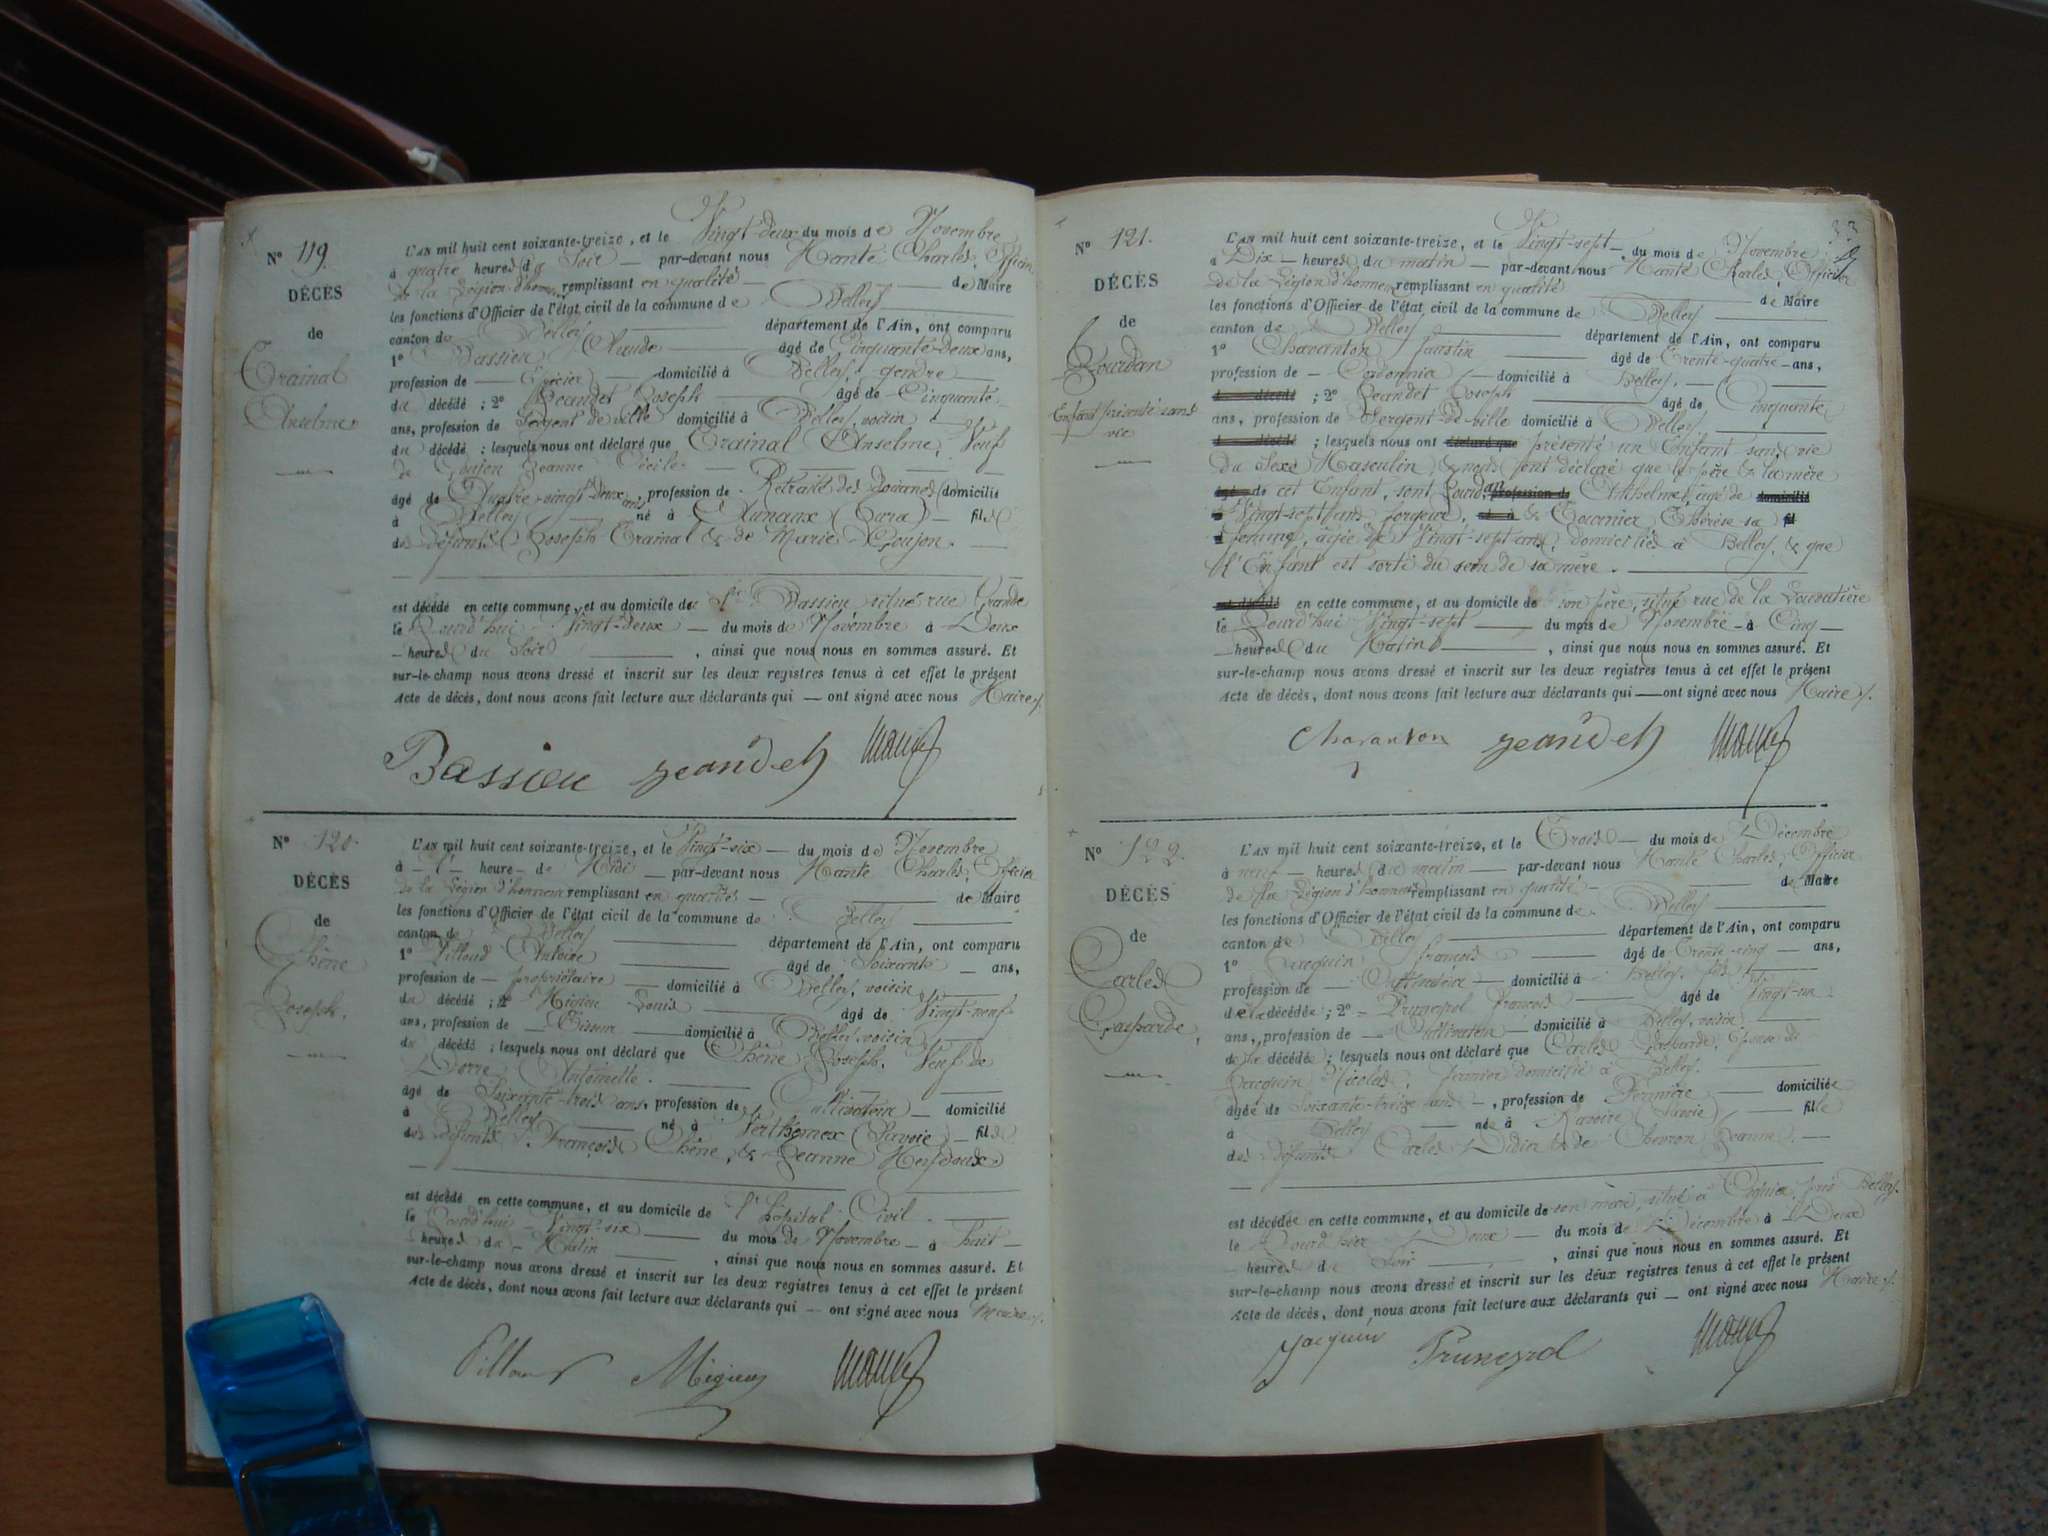 N° 119.
DÉCÈS
de
Trainal
Anselme
L'AN mil huit cent soixante-treize, et le Vingt-deux du mois de Novembre
à quatre heures du Soir par-devant nous Charles, Officier
de la Légion d'honneur remplissant en qualité de Maire
les fonctions d'Officier de l'état civil de la commune de Belley
canton de Belley département de l'Ain, ont comparu
1° Bassieu Claude âgé de Cinquante-deux ans,
profession de Epicier domicilié à Belley, gendre
du décédé ; 2° Jeandet Joseph âgé de Cinquante
ans, profession de Sergent de ville domicilié à Belley, voisin
du décédé ; lesquels nous ont déclaré que Trainal Anselme, Veuf
de Goujon Jeanne Cécile
âgé de Quatre-vingt-deux ans, profession de Retraité des Douanes domicilié
à Belley né à (Jura) fils
des défunts Joseph Trainal & de Marie Goujon.
est décédé en cette commune, et au domicile de Sr. Bassieu situé rue Grande
le Jourd'hui Vingt-deux du mois de Novembre à Deux
heures du Soir , ainsi que nous nous en sommes assuré. Et
sur-le-champ nous avons dressé et inscrit sur les deux registres tenus à cet effet le présent
Acte de décès, dont nous avons fait lecture aux déclarants qui — ont signé avec nous Maire
Bassieu Jeandet
N° 120.
DÉCÈS
de
Chêne
Joseph.
L'AN mil huit cent soixante-treize, et le Vingt-six du mois de Novembre
à l' heure de Midi par-devant nous Charles, Officier
de la Légion d'honneur remplissant en qualité de Maire
les fonctions d'Officier de l'état civil de la commune de Belley
canton de Belley département de l'Ain, ont comparu
1° Pilloud Antoine âgé de Soixante ans,
profession de propriétaire domicilié à Belley, voisin
du décédé ; 2° Migieu Louis âgé de Vingt-neuf
ans, profession de Tisseur domicilié à Belley, voisin
du décédé ; lesquels nous ont déclaré que Chêne Joseph, Veuf de
Antoinette.
âgé de Soixante-trois ans, profession de Cultivateur domicilié
à Belley né à Verthemex (Savoie) fils
des défunts François Chêne, & Jeanne
est décédé en cette commune, et au domicile de l'hôpital Civil.
le Jourd'hui Vingt-six du mois de Novembre à huit
heures du Matin , ainsi que nous nous en sommes assuré. Et
sur-le-champ nous avons dressé et inscrit sur les deux registres tenus à cet effet le présent
Acte de décès, dont nous avons fait lecture aux déclarants qui — ont signé avec nous Maire
Pilloud Migieu
33
N° 121.
DÉCÈS
de
Gourdan
Enfant présenté sans
vie
L'AN mil huit cent soixante-treize, et le Vingt-sept du mois de Novembre
à Dix heures du matin par-devant nous Charles, Officier
de la Légion d'honneur remplissant en qualité de Maire
les fonctions d'Officier de l'état civil de la commune de Belley
canton de Belley département de l'Ain, ont comparu
1° Charanton Faustin âgé de Trente-quatre ans,
profession de Cordonnier domicilié à Belley,
du décédé ; 2° Jeandet Joseph âgé de Cinquante
ans, profession de Sergent-de-ville domicilié à Belley
du décédé ; lesquels nous ont déclaré que présenté un Enfant sans vie
du Sexe Masculin, & nous sont déclaré que le père & la mère
de cet Enfant, sont Anthelme, âgé de
Vingt-sept ans forgeur, & Tournier Thérèse sa
femme, âgée de Vingt-sept ans, domiciliés à Belley, & que
l'Enfant est sorti du sein de sa mère.
est décédé en cette commune, et au domicile de son père, situé rue de la
le Jourd'hui Vingt-sept du mois de Novembre à Cinq
heures du Matin , ainsi que nous nous en sommes assuré. Et
sur-le-champ nous avons dressé et inscrit sur les deux registres tenus à cet effet le présent
Acte de décès, dont nous avons fait lecture aux déclarants qui — ont signé avec nous Maire
Charanton Jeandet
N° 122.
DÉCÈS
de
Carles
Gasparde,
L'AN mil huit cent soixante-treize, et le Trois du mois de Décembre
à neuf heures du matin par-devant nous Charles, Officier
de la Légion d'honneur remplissant en qualité de Maire
les fonctions d'Officier de l'état civil de la commune de Belley
canton de Belley département de l'Ain, ont comparu
1° Jacquin François âgé de Trente-cinq ans,
profession de Cultivateur domicilié à Belley, fils
de la décédée ; 2° Pruneyrol François âgé de Vingt-un
ans, profession de Cultivateur domicilié à Belley, voisin
de la décédée ; lesquels nous ont déclaré que Carles Gasparde, Epouse de
Jacquin Nicolas, fermier domicilié à Belley.
âgée de Soixante-treize ans, profession de Fermière domiciliée
à Belley née à Ravoire (Savoie) fille
des défunts Carles Didier & de Chevron Jeanne.
est décédée en cette commune, et au domicile de son mari, situé à près Belley.
le Jourd'hier Deux du mois de Décembre à Deux
heures du Soir , ainsi que nous nous en sommes assuré. Et
sur-le-champ nous avons dressé et inscrit sur les deux registres tenus à cet effet le présent
Acte de décès, dont nous avons fait lecture aux déclarants qui — ont signé avec nous Maire
Jacquin Pruneyrol